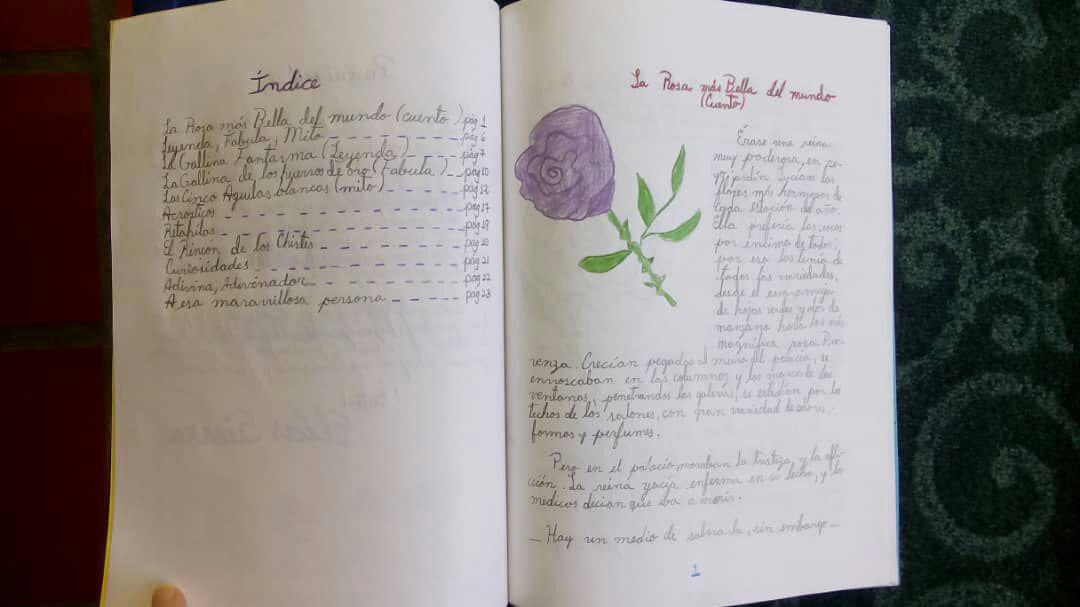 Índice
La Rosa más Bella del mundo (cuento) pág 1
Leyenda, Fabula, Mito - - - - - - - - - pág 6
La Gallina Fantarma (Leyenda) - - - - - pág 7
La Gallina de los huevos de oro (Fabula) - - pág 10
Las Cinco Aguilas blancas (mito) - - - - - pág 12
Acrosticos - - - - - - - - - - - - - pág 17
Retahilas - - - - - - - - - - - - - pág 19
El Rincón de los Chistes - - - - - - - - pág 20
Curiosidades - - - - - - - - - - - - pág 21
Adivina, Adivinador - - - - - - - - - pág 22
A esa maravillosa persona - - - - - pág 23
La Rosa más Bella del mundo
(Cuento)
Érase una reina
muy poderosa, en cu-
yo jardín lucían las
flores más hermosas de
cada estación del año.
Ella prefería las rosas
por encima de todas;
por eso las tenía de
todas las variedades,
desde el escaramujo
de hojas verdes y olor de
manzana hasta la más
magnífica rosa Pro-
venza. Crecían pegadas al muro del palacio, se
enroscaban en las columnas y los marcos de las
ventanas, penetrando las galerías, se extendían por los
techos de los salones, con gran variedad de colores,
formas y perfumes.
Pero en el palacio moraban la tristeza y la afli-
cción. La reina yacía enferma en su lecho, y los
medicos decian que iba a morir.
— Hay un medio de salvarla, sin embargo —
1